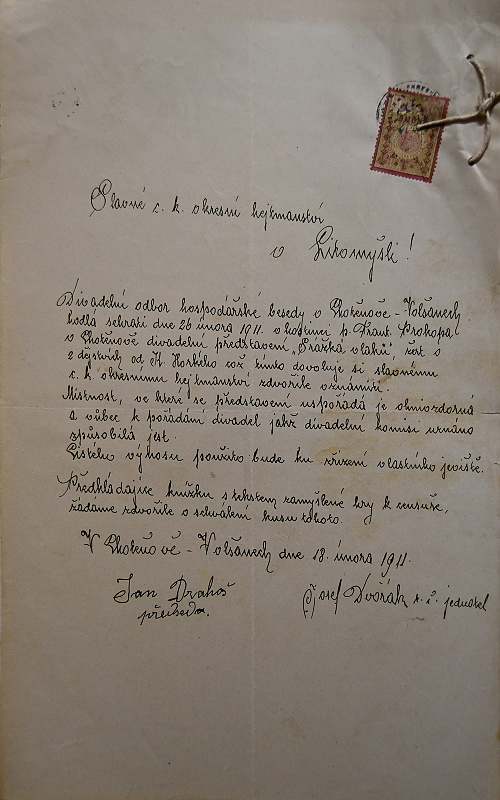 Slavné c. k. okresní hejtmanství
v Litomyšli!
Divadelní odbor hospodářské besedy v Chotěnově - Volšanech
hodlá sehrati dne 26 února 1911. v hostinci p. Frant. Prokopa
v Chotěnově divadelní představení „Srážka vlaků", žert o
2 dějstvích od M. Horkého což tímto dovoluje si slavnému
c. k. okresnímu hejtmanství zdvořile oznámiti.
Místnost, ve které se představení uspořádá je ohnivzdorná
a vůbec k pořádání divadel jakž divadelní komisí uznáno
způsobilá jest.
Čistého výnosu použito bude ku zřízení vlastního jeviště.
Předkládajíce knížku s tekstem zamýšlené hry k censuře,
žádáme zdvořile o schválení kusu tohoto.
V Chotěnově - Volšanech dne 18. února 1911.
Jan Drahoš
předseda.
Josef Dvořák t. č. jednatel